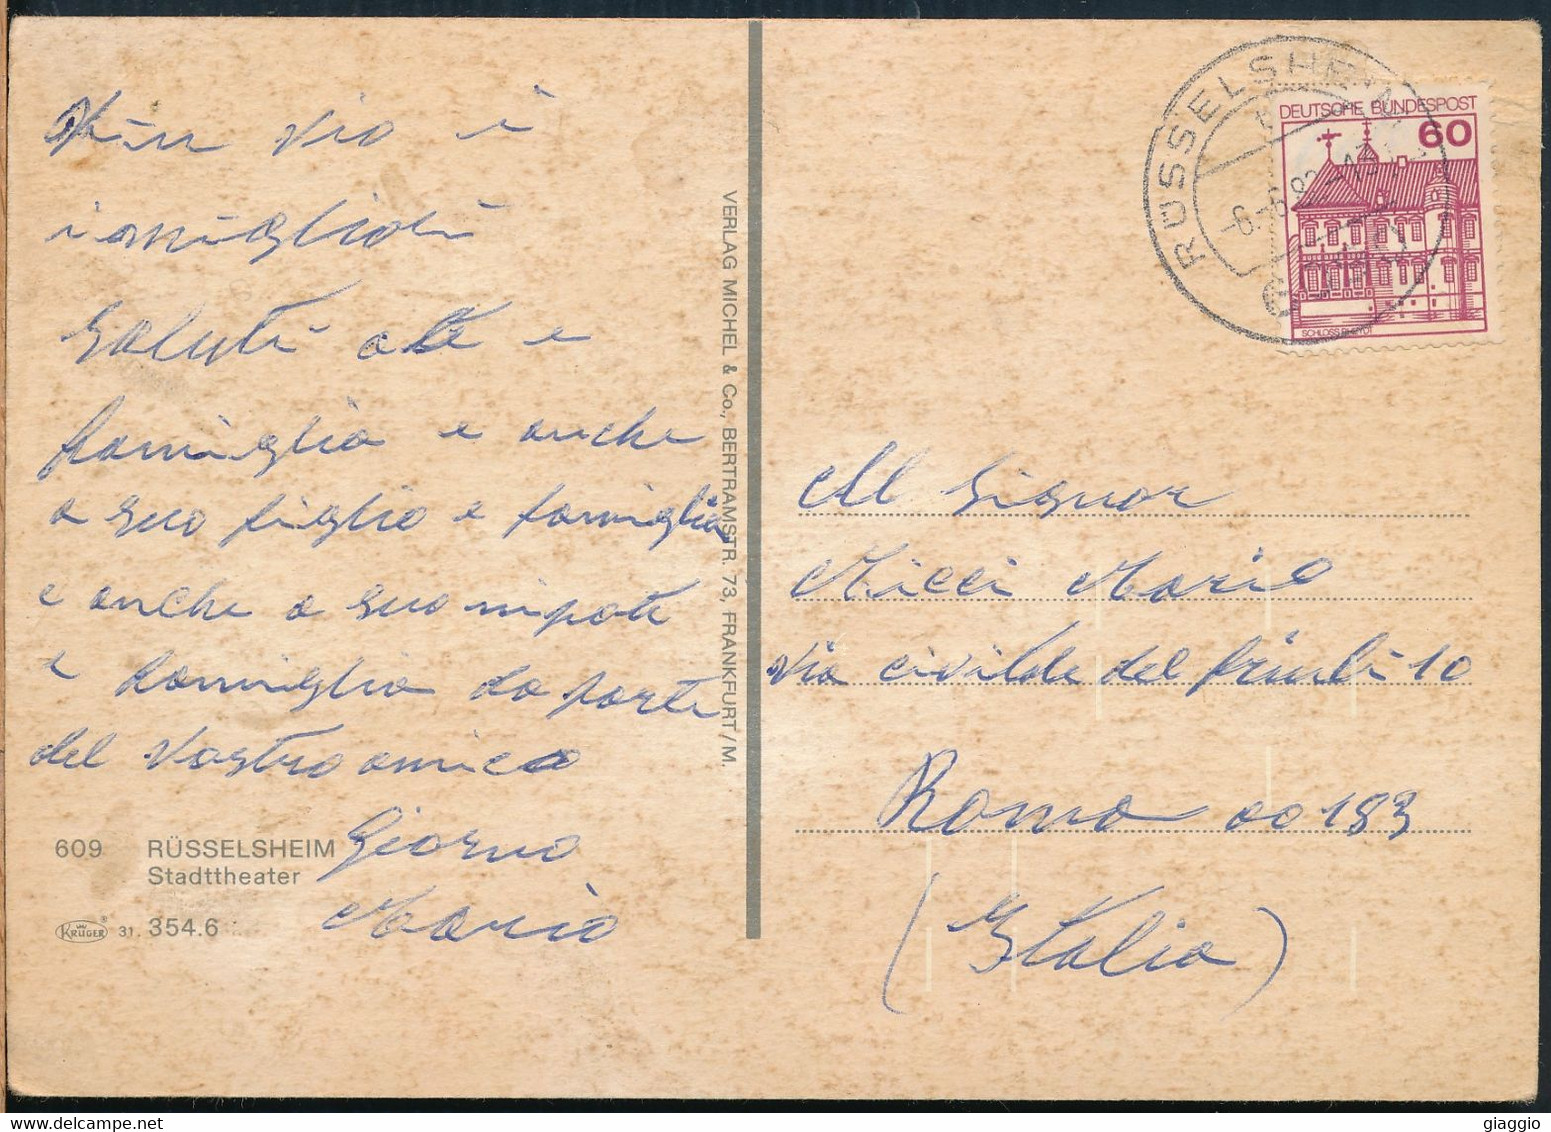 Vi invio i
i migliori
Saluti a te e
famiglia e anche
a suo figlio e famiglia
e anche a suo nipote
e famiglia da parte
del Vostro amico
Giorno
Mario
609 RÜSSELSHEIM
Stadttheater
KRÜGER 31. 354.6
VERLAG MICHEL & Co., BERTRAMSTR. 73, FRANKFURT/M.
RÜSSELSHEIM
DEUTSCHE BUNDESPOST
60
SCHLOSS RHEYDT
Al Signor
Micci Mario
Via civilde del friuli 10
Roma 00183
(Italia)
giaggio